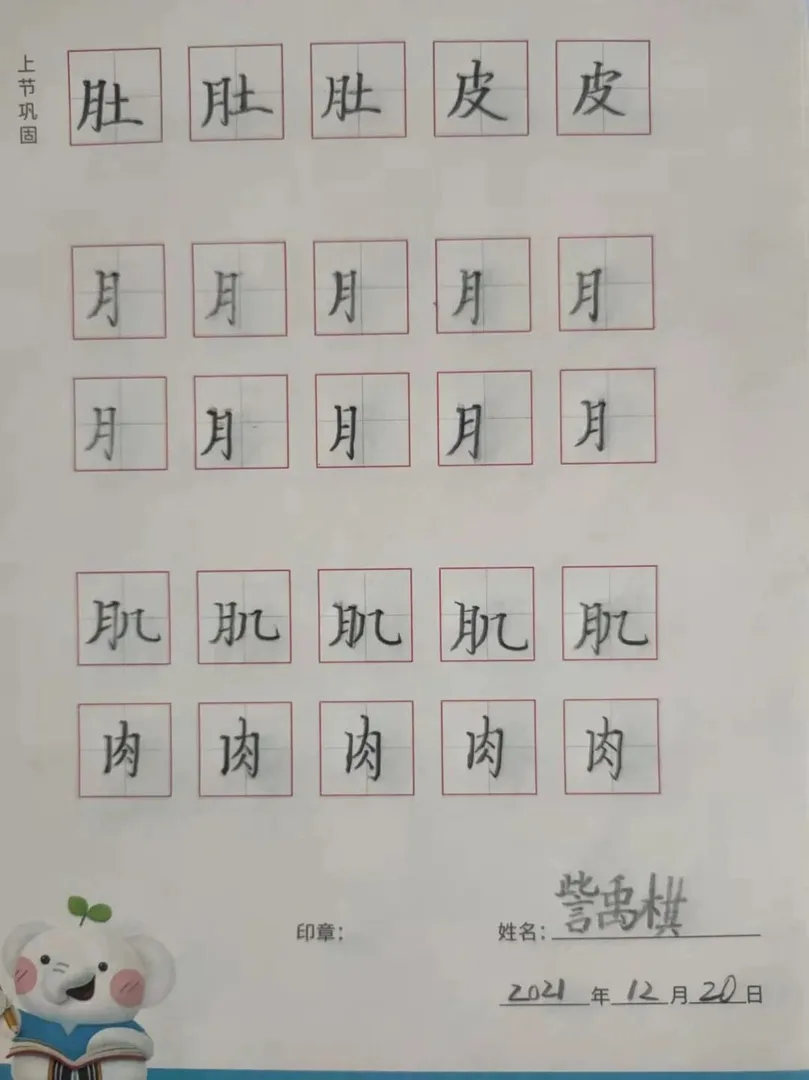 上节巩固
肚 肚 肚 皮 皮
月 月 月 月 月
月 月 月 月 月
肌 肌 肌 肌 肌
肉 肉 肉 肉 肉
印章: 姓名: 訾禹棋
2021 年 12 月 20 日